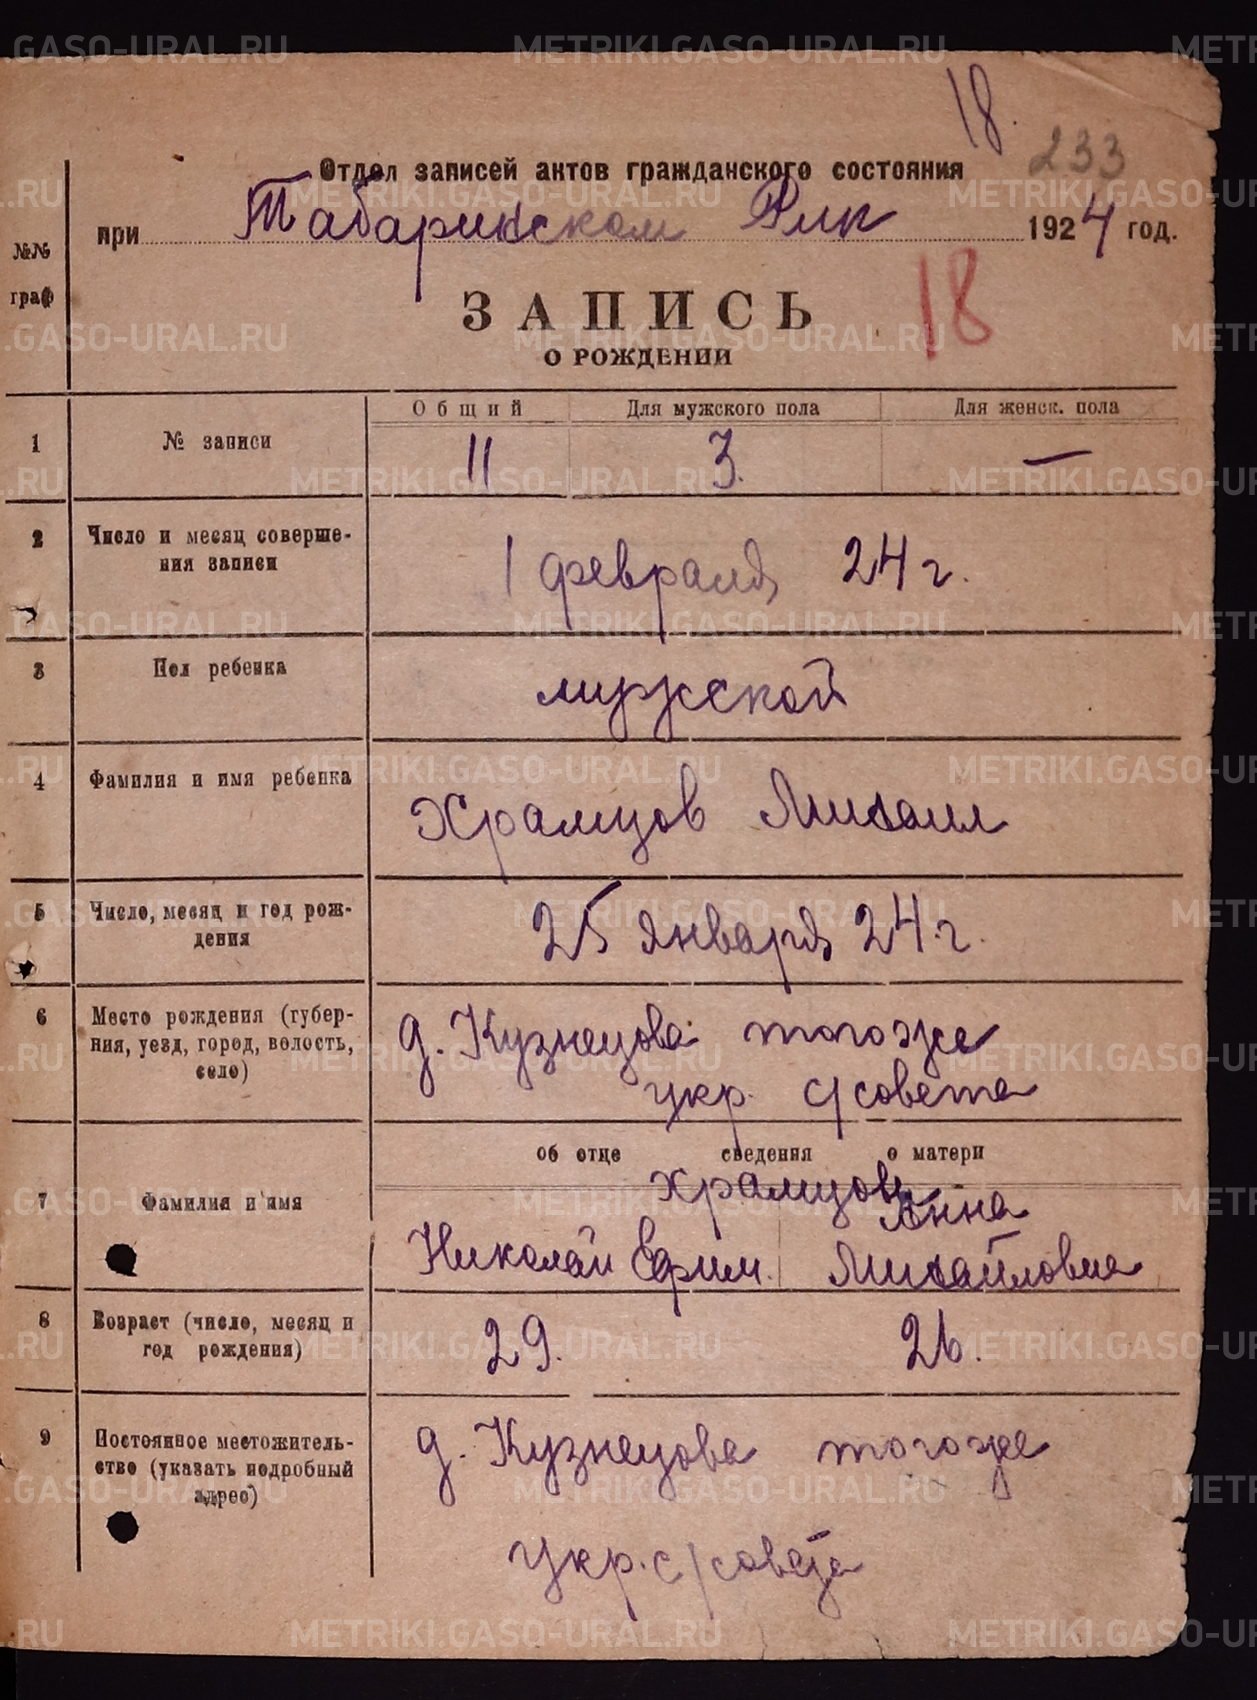 18.
233
Отдел записей актов гражданского состояния
при Табаринском Рик 1924 год.
№№ граф
ЗАПИСЬ
18
О РОЖДЕНИИ
Общий Для мужского пола Для женск. пола
1 № записи 11 3. —
2 Число и месяц соверше-
ния записи
1 февраля 24 г.
3 Пол ребенка мужской
4 Фамилия и имя ребенка Храмцов Михаил
5 Число, месяц и год рож-
дения
25 января 24.г.
6 Место рождения (губер-
ния, уезд, город, волость,
село)
д. Кузнецова тогоже
укр. с/совета
об отце сведения о матери
7 Фамилия и имя
Храмцовы
Николай Ефим. Анна
Михайловна
8 Возраст (число, месяц и
год рождения)
29. 26.
9 Постоянное местожитель-
ство (указать подробный
адрес)
д. Кузнецова тогоже
Укр. с/совета
METRIKI.GASO-URAL.RU